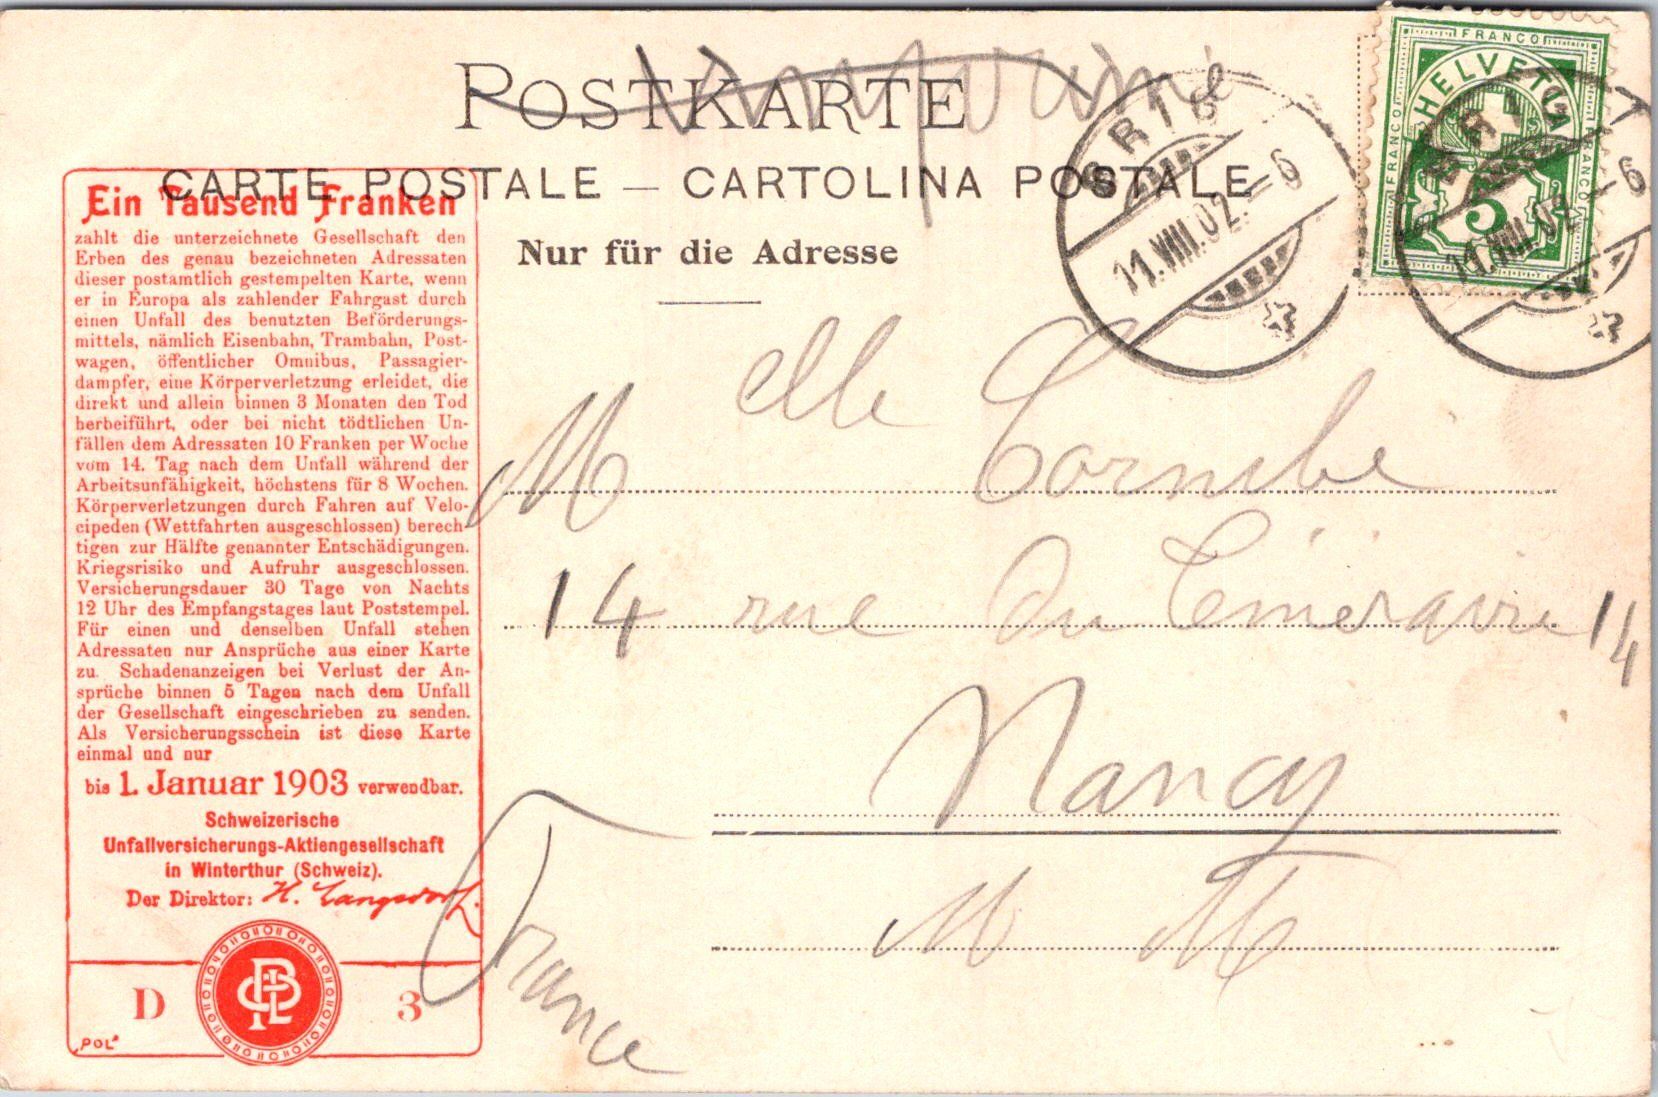 POSTKARTE
CARTE POSTALE — CARTOLINA POSTALE
Nur für die Adresse
Imprimé
FRANCO
HELVETIA
FRANCO
FRANCO
5
BRIG
11.VIII.02.–6
11.VIII.02
6
Ein Tausend Franken
zahlt die unterzeichnete Gesellschaft den
Erben des genau bezeichneten Adressaten
dieser postamtlich gestempelten Karte, wenn
er in Europa als zahlender Fahrgast durch
einen Unfall des benutzten Beförderungs-
mittels, nämlich Eisenbahn, Trambahn, Post-
wagen, öffentlicher Omnibus, Passagier-
dampfer, eine Körperverletzung erleidet, die
direkt und allein binnen 3 Monaten den Tod
herbeiführt, oder bei nicht tödtlichen Un-
fällen dem Adressaten 10 Franken per Woche
vom 14. Tag nach dem Unfall während der
Arbeitsunfähigkeit, höchstens für 8 Wochen.
Körperverletzungen durch Fahren auf Velo-
cipeden (Wettfahrten ausgeschlossen) berech-
tigen zur Hälfte genannter Entschädigungen.
Kriegsrisiko und Aufruhr ausgeschlossen.
Versicherungsdauer 30 Tage von Nachts
12 Uhr des Empfangstages laut Poststempel.
Für einen und denselben Unfall stehen
Adressaten nur Ansprüche aus einer Karte
zu. Schadenanzeigen bei Verlust der An-
sprüche binnen 5 Tagen nach dem Unfall
der Gesellschaft eingeschrieben zu senden.
Als Versicherungsschein ist diese Karte
einmal und nur
bis 1. Januar 1903 verwendbar.
Schweizerische
Unfallversicherungs-Aktiengesellschaft
in Winterthur (Schweiz).
Der Direktor: H. Langsdorf.
D 3
"POL"
Melle Cornibe
14 rue du Téméraire 14
Nancy
M M
France